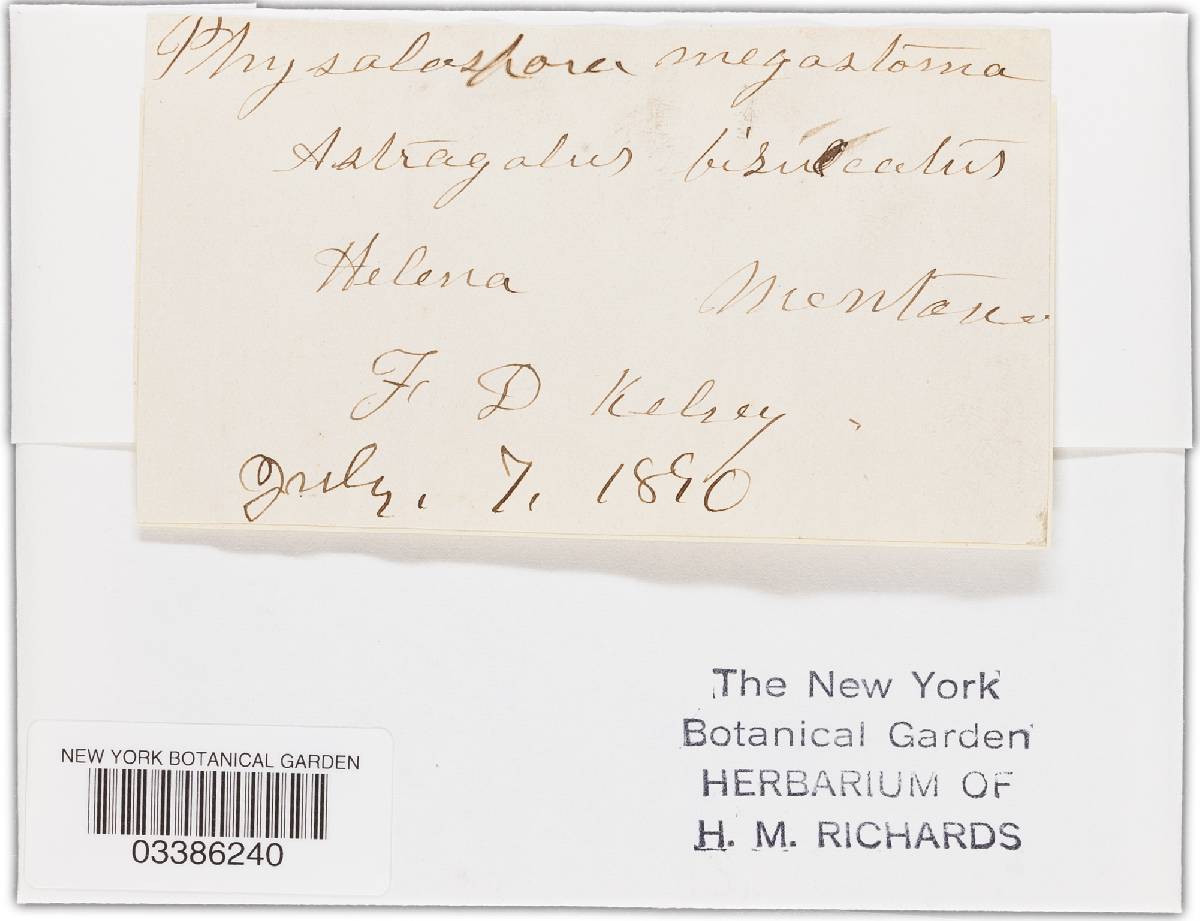 Physalospora megastoma
Astragalus bisulcatus
Helena Montana
F. D Kelsey.
July. 7. 1890
The New York
Botanical Garden
HERBARIUM OF
H. M. RICHARDS
NEW YORK BOTANICAL GARDEN
03386240